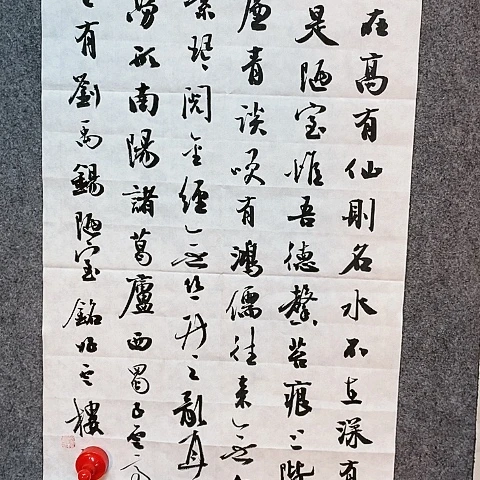 在高有仙則名水不在深有
是陋室惟吾德馨苔痕上階
廉青談唉有鴻儒往來無
素琴閱金經無絲竹之亂耳
勞形南陽諸葛廬西蜀子雲
有劉禹錫陋室銘
樓